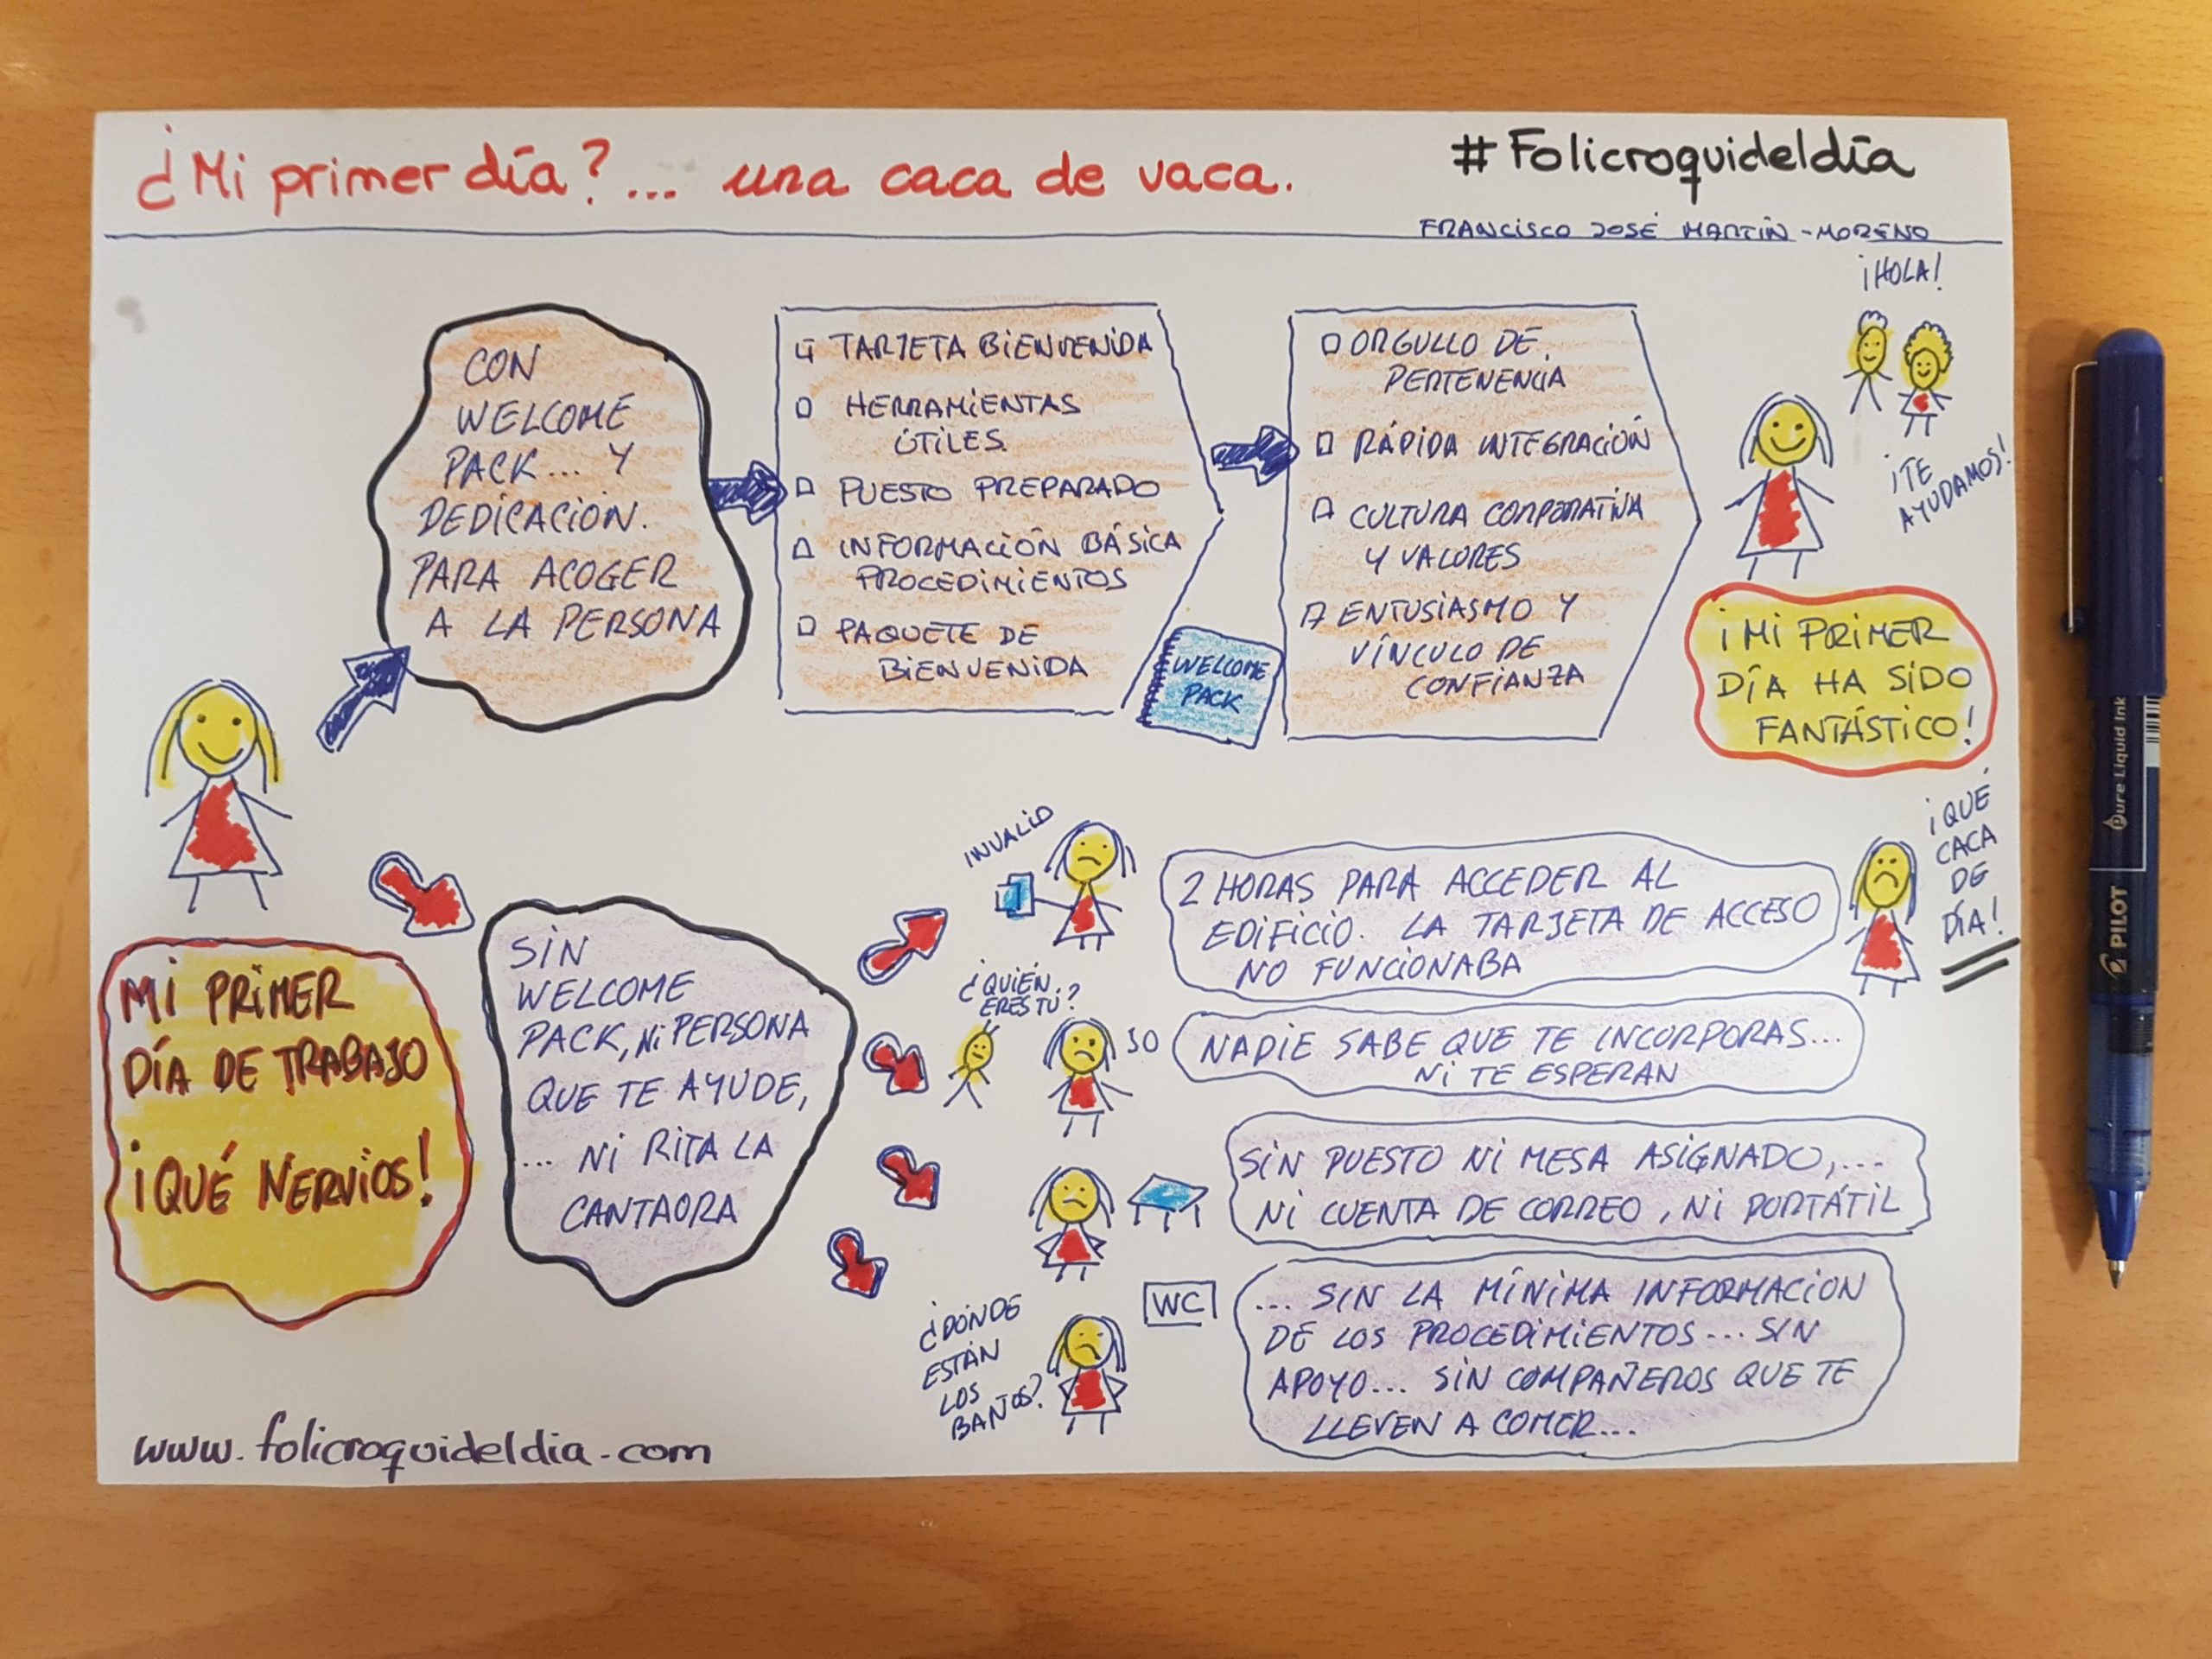 ¿Mi primer día?... una caca de vaca.
#Folicroquideldía
FRANCISCO JOSÉ MARTÍN-MORENO
CON
WELCOME
PACK... Y
DEDICACIÓN.
PARA ACOGER
A LA PERSONA
TARJETA BIENVENIDA
HERRAMIENTAS
ÚTILES
PUESTO PREPARADO
INFORMACIÓN BÁSICA
PROCEDIMIENTOS
PAQUETE DE
BIENVENIDA
WELCOME
PACK
ORGULLO DE
PERTENENCIA
RÁPIDA INTEGRACIÓN
CULTURA CORPORATIVA
Y VALORES
ENTUSIASMO Y
VÍNCULO DE
CONFIANZA
¡HOLA!
¡TE
AYUDAMOS!
¡MI PRIMER
DÍA HA SIDO
FANTÁSTICO!
MI PRIMER
DÍA DE TRABAJO
¡QUÉ NERVIOS!
SIN
WELCOME
PACK, Ni PERSONA
QUE TE AYUDE,
... NI RITA LA
CANTAORA
INVALID
2 HORAS PARA ACCEDER AL
EDIFICIO. LA TARJETA DE ACCESO
NO FUNCIONABA
¡QUÉ
CACA
DE
DÍA!
¿QUIÉN
ERES TÚ?
JO
NADIE SABE QUE TE INCORPORAS...
NI TE ESPERAN
SIN PUESTO NI MESA ASIGNADO,...
NI CUENTA DE CORREO, NI PORTÁTIL
¿DÓNDE
ESTÁN
LOS
BAÑOS?
WC
... SIN LA MÍNIMA INFORMACIÓN
DE LOS PROCEDIMIENTOS... SIN
APOYO... SIN COMPAÑEROS QUE TE
LLEVEN A COMER...
www.folicroquideldia.com
Pure Liquid Ink
PILOT